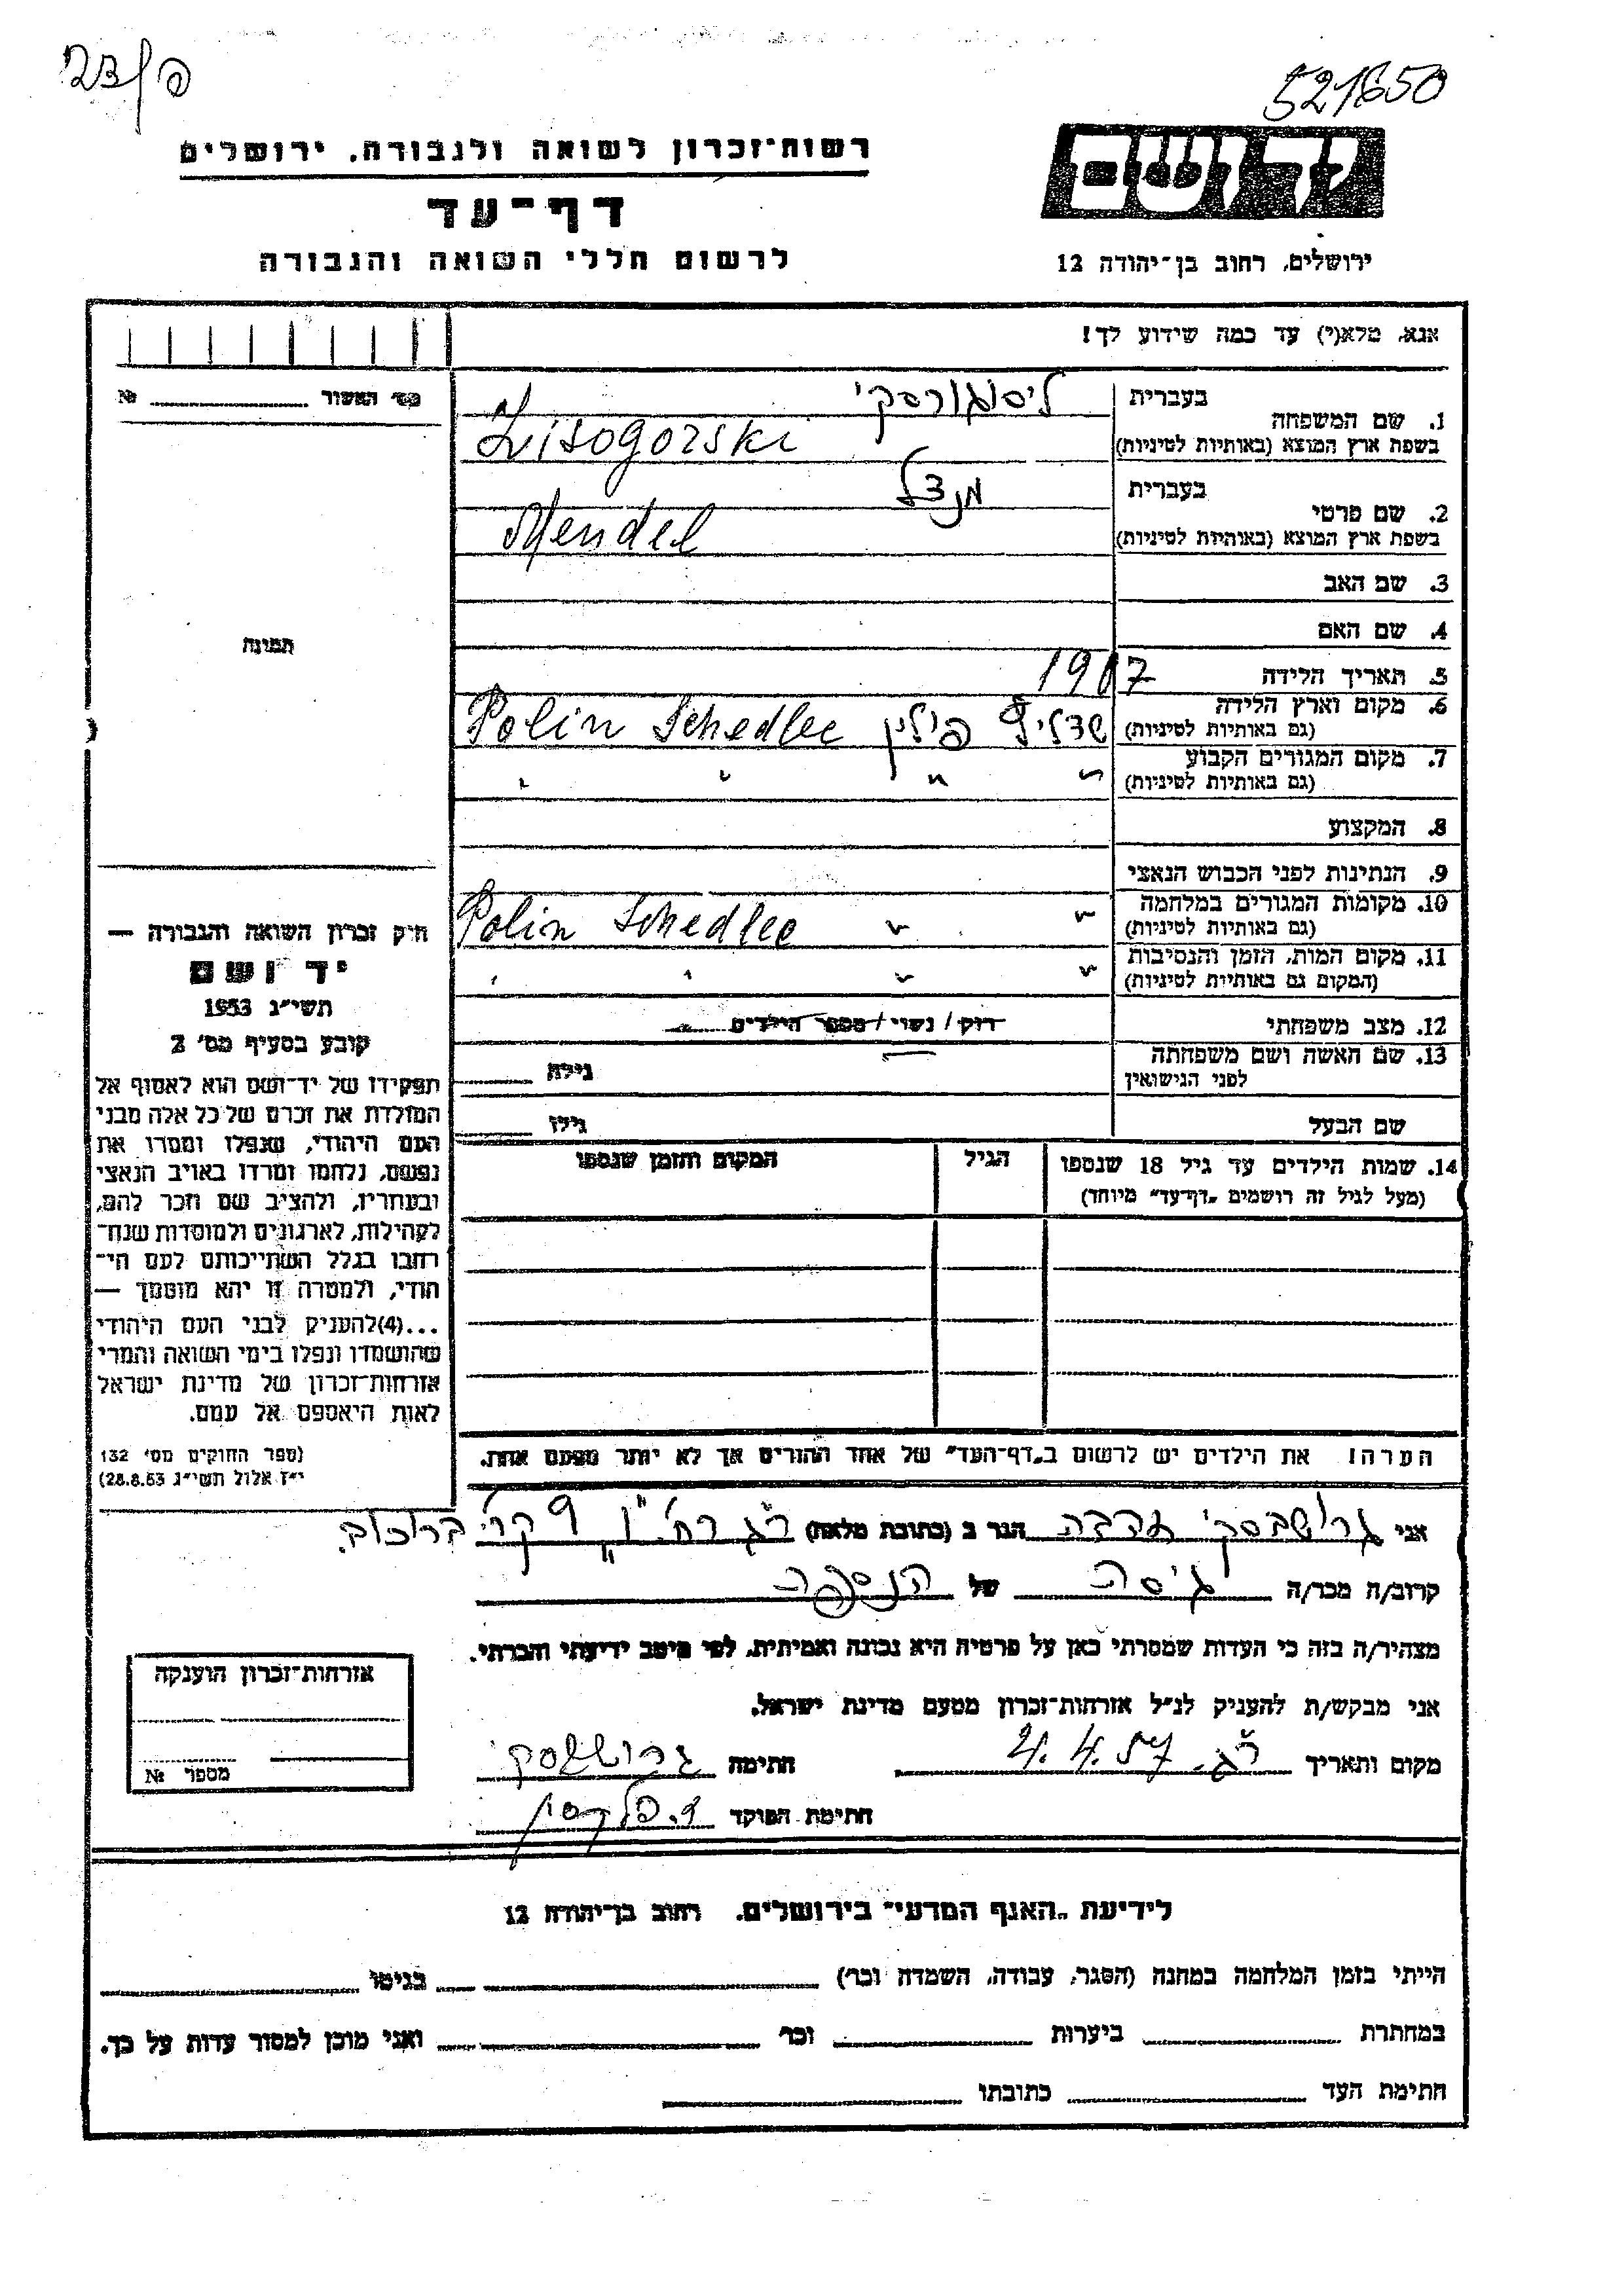 521650
רשות־זכרון לשואה ולגבורה, ירושלים
יד ושם
דף־עד
לרשום חללי השואה והגבורה
ירושלים, רחוב בן־יהודה 12
אנא, מלא(י) עד כמה שידוע לך!
מס' האשור №
1. שם המשפחה
בעברית ליסוגורסקי
בשפת ארץ המוצא (באותיות לטיניות) Lisogorski
2. שם פרטי
בעברית מנדל
בשפת ארץ המוצא (באותיות לטיניות) Mendel
3. שם האב
4. שם האם
תמונה
5. תאריך הלידה 1907
6. מקום וארץ הלידה
(גם באותיות לטיניות) פולין Polin Schedlec
7. מקום המגורים הקבוע
(גם באותיות לטיניות) " " " "
8. המקצוע
9. הנתינות לפני הכבוש הנאצי
10. מקומות המגורים במלחמה
(גם באותיות לטיניות) " " Polin Schedlec
11. מקום המות, הזמן והנסיבות
(המקום גם באותיות לטיניות) " " " "
12. מצב משפחתי רוק/נשוי/מספר הילדים
13. שם האשה ושם משפחתה
לפני הנישואין גילה
שם הבעל גילו
14. שמות הילדים עד גיל 18 שנספו
(מעל לגיל זה רושמים „דף־עד" מיוחד)
הגיל
המקום והזמן שנספו
חוק זכרון השואה והגבורה —
יד ושם
תשי"ג 1953
קובע בסעיף מס' 2
תפקידו של יד־ושם הוא לאסוף אל
המולדת את זכרם של כל אלה מבני
העם היהודי, שנפלו ומסרו את
נפשם, נלחמו ומרדו באויב הנאצי
ובעוזריו, ולהציב שם וזכר להם,
לקהילות, לארגונים ולמוסדות שנח־
רבו בגלל השתייכותם לעם הי־
הודי, ולמטרה זו יהא מוסמך —
...(4)להעניק לבני העם היהודי
שהושמדו ונפלו בימי השואה והמרי
אזרחות־זכרון של מדינת ישראל
לאות היאספם אל עמם.
(ספר החוקים מס' 132
י"ז אלול תשי"ג 28.8.53)
הערה! את הילדים יש לרשום ב„דף־העד" של אחד ההורים אך לא יותר מפעם אחת.
אני גרושבסקי הגר ב (כתובת מלאה) ר"ג רח'
קרוב/ה מכר/ה גיסה של הנספה
מצהיר/ה בזה כי העדות שמסרתי כאן על פרטיה היא נכונה ואמיתית, לפי מיטב ידיעתי והכרתי.
אני מבקש/ת להעניק לנ"ל אזרחות־זכרון מטעם מדינת ישראל.
מקום ותאריך ר"ג. 4.57 חתימה
חתימת הפוקד
אזרחות־זכרון הוענקה
מספר №
לידיעת „האגף המדעי" בירושלים. רחוב בן־יהודה 12
הייתי בזמן המלחמה במחנה (הסגר, עבודה, השמדה וכו') בגיטו
במחתרת ביערות וכו' ואני מוכן למסור עדות על כך.
חתימת העד כתובתו